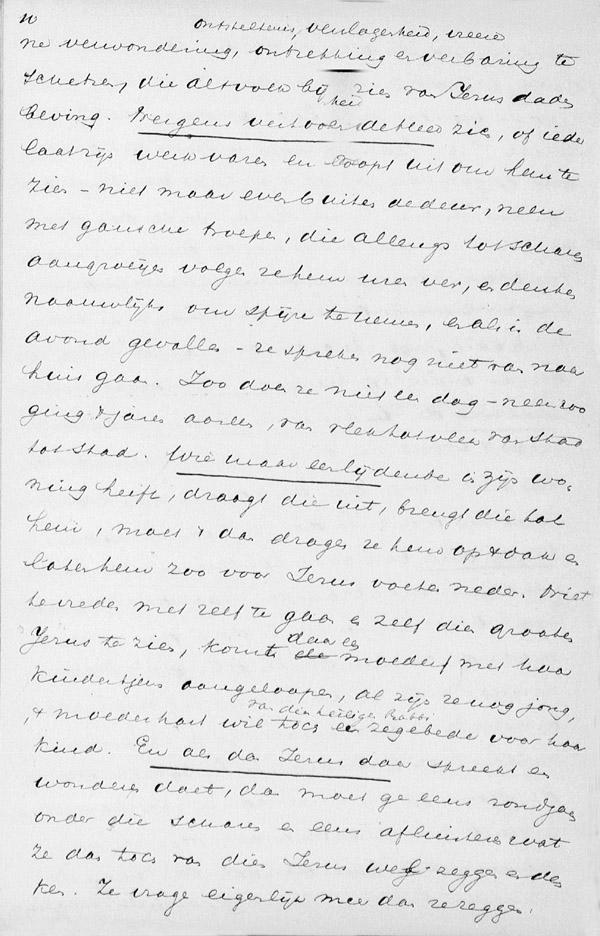 10
ontsteltenis, verslagenheid, vreem
ne verwondering, ontzetting en verbazing te
schetsen, die het volk bij 't zien van Jezus daden
beving. Nergens vertoonde hij zich, of ieder
laat zijn werk varen en loopt uit om hem te
zien – niet maar even buiten de deur, neen
met gansche troepen, die allengs tot scharen
aangroeijen volgen ze hem uren ver, en denken
naauwlijks om spijze te nemen, en als is de
avond gevallen – ze spreken nog niet van naar
huis gaan. Zoo doen ze niet een dag – neen zoo
ging 't jaren aaneen, van vlek tot vlek van stad
tot stad. Wie maar een lijdende in zijn wo-
ning heeft, draagt die uit, brengt die tot
hem, moet 't dan dragen ze hem op 't dak en
laten hem zoo voor Jezus voeten neder. Niet
tevreden met zelf te gaan en zelf dien grooten
Jezus te zien, komt daar een moeder met haar
kindertjens aangeloopen, al zijn ze nog jong,
van dien heiligen Rabbi
't moederhart wil toch een zegebede voor haar
kind. En als dan Jezus daar spreekt en
wonderen doet, dan moet ge eens rondgaan
onder die scharen en eens afluisteren wat
ze dan toch van dien Jezus wel zeggen en den
ken. Ze vrage eigenlijk meer dan ze zeggen.